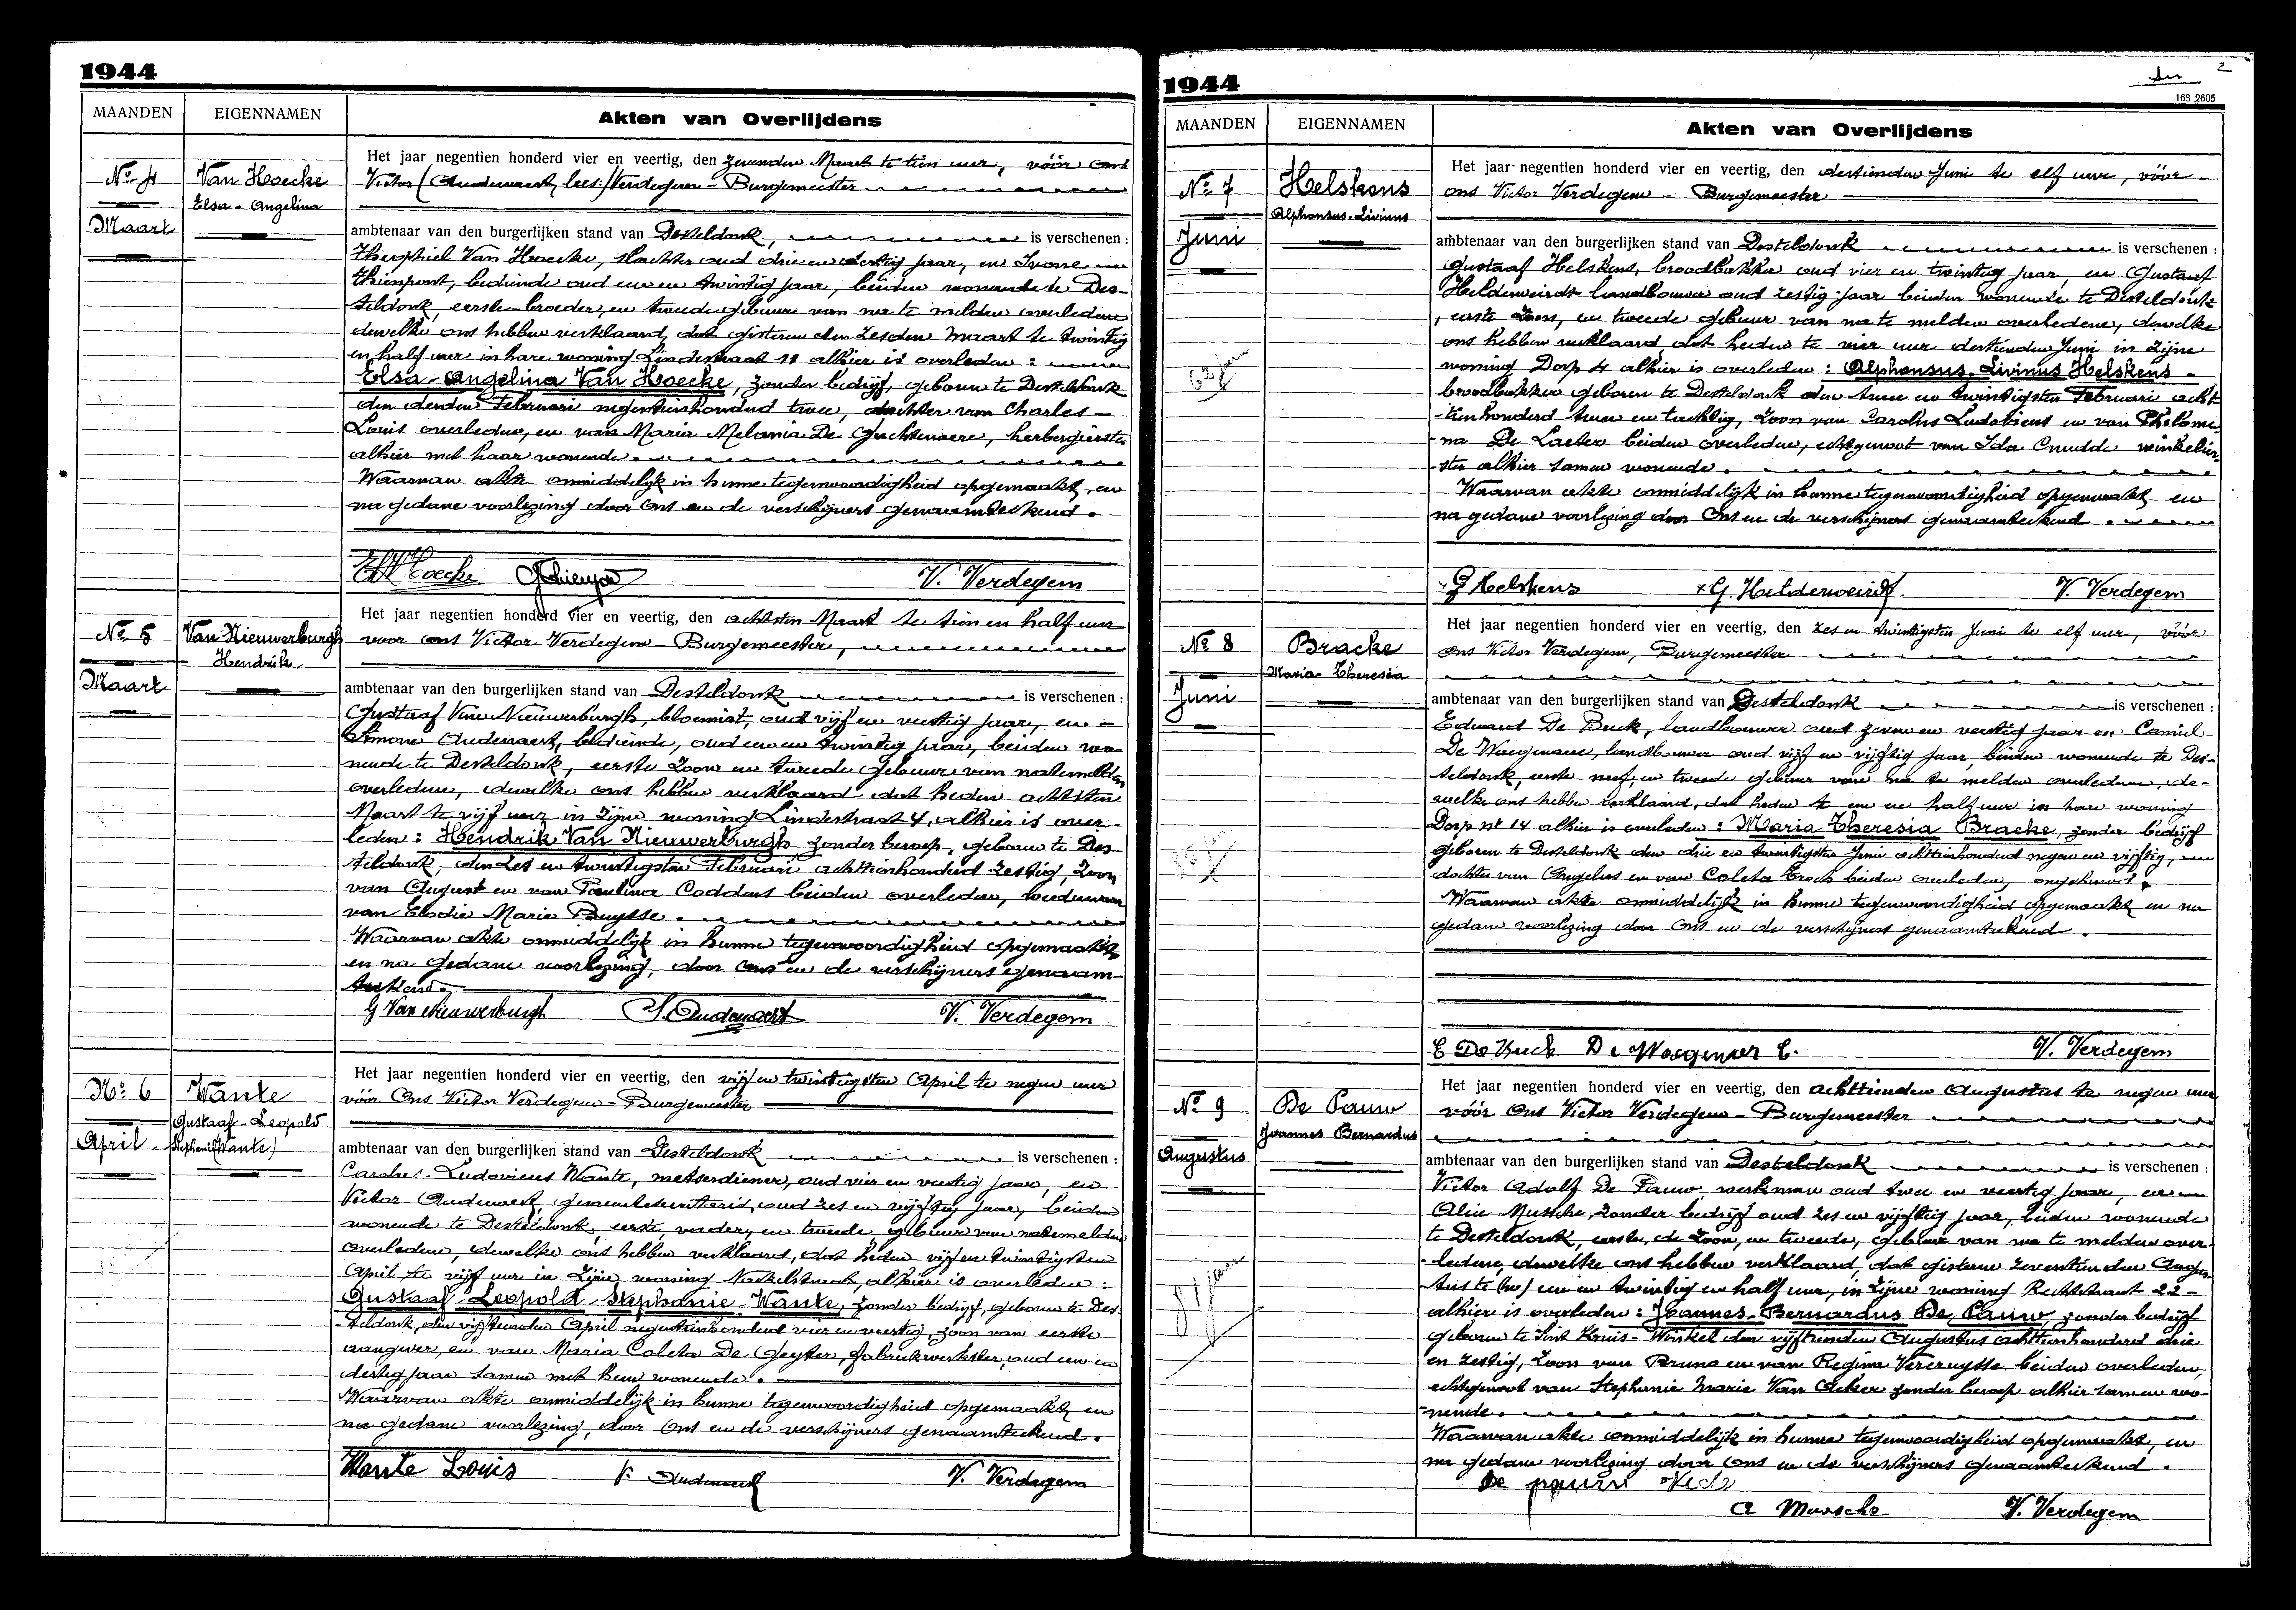 1944
MAANDEN EIGENNAMEN Akten van Overlijdens
Nº 4
Maart
Van Hoecke
Elsa-Angelina
Het jaar negentien honderd vier en veertig, den zevenden Maart te tien uur, vóór ons
Victor (Oudenaert, lees:) Verdegem - Burgemeester
ambtenaar van den burgerlijken stand van Desteldonk, is verschenen :
Theophiel Van Hoecke, slachter oud drie en dertig jaar, en Ivonne
Thienpont, bediende oud een en twintig jaar, beiden wonende te Des-
teldonk, eerste broeder, en tweede gebuur van na te melden overledene
dewelke ons hebben verklaard, dat gisteren den zesden Maart te twintig
en half uur in hare woning Lindestraat 11 alhier is overleden :
Elsa-Angelina Van Hoecke, zonder bedrijf, geboren te Desteldonk
den derden Februari negentienhonderd twee, dochter van Charles-
Louis overleden, en van Maria Melania De Guchtenaere, herbergierster
alhier met haar wonende.
Waarvan akte onmiddelijk in hunne tegenwoordigheid opgemaakt, en
na gedane voorlezing door ons en de verschijners genaamteekend.
V. Verdegem
Nº 5
Maart
Van Nieuwerburgh
Hendrik
Het jaar negentien honderd vier en veertig, den achtsten Maart te tien en half uur
voor ons Victor Verdegem - Burgemeester,
ambtenaar van den burgerlijken stand van Desteldonk is verschenen :
Gustaaf Van Nieuwerburgh, bloemist, oud vijf en veertig jaar, en -
Simone Oudenaert, bediende, oud een en twintig jaar, beiden wo-
nende te Desteldonk, eerste zoon en tweede gebuur van natemelden
overledene, dewelke ons hebben verklaard dat heden achtsten
Maart te vijf uur in zijne woning Lindestraat 4, alhier is over-
leden : Hendrik Van Nieuwerburgh zonder beroep, geboren te Des-
teldonk, den zes en twintigsten Februari achttienhonderd zestig, zoon
van August en van Paulina Coddens beiden overleden, weduwaar
van Elodie Marie Buysse.
Waarvan akte onmiddelijk in hunne tegenwoordigheid opgemaakt
en na gedane voorlezing, door ons en de verschijners genaam-
teekend.
G Van Nieuwerburgh S. Oudenaert V. Verdegem
Nº 6
April
Wante
Gustaaf-Leopold
Stephanie (Wante)
Het jaar negentien honderd vier en veertig, den vijf en twintigsten April te negen uur
vóór Ons Victor Verdegem - Burgemeester
ambtenaar van den burgerlijken stand van Desteldonk is verschenen :
Carolus-Ludovicus Wante, metserdiener, oud vier en veertig jaar, en
Victor Oudenaert, gemeentesecretaris, oud zes en vijftig jaar, beiden
wonende te Desteldonk, eerste, vader, en tweede, gebuur van natemelden
overledene, dewelke ons hebben verklaard, dat heden vijf en twintigsten
April te vijf uur in zijne woning alhier is overleden :
Gustaaf-Leopold-Stephanie-Wante, zonder bedrijf, geboren te Des-
teldonk, den vijftienden April negentienhonderd vier en veertig, zoon van eerste
aangever, en van Maria Coleta De Geyter, fabriekwerkster, oud een en
dertig jaar samen met hem wonende.
Waarvan akte onmiddelijk in hunne tegenwoordigheid opgemaakt en
na gedane voorlezing, door Ons en de verschijners genaamteekend.
Wante Louis V. Oudenaert V. Verdegem
1944
2
168 2605
MAANDEN EIGENNAMEN Akten van Overlijdens
Nº 7
Juni
Helskens
Alphonsus-Livinus
62 jaar
Het jaar negentien honderd vier en veertig, den dertienden Juni te elf uur, vóór
ons Victor Verdegem - Burgemeester
ambtenaar van den burgerlijken stand van Desteldonk is verschenen :
Gustaaf Helskens, broodbakker oud vier en twintig jaar, en Gustaaf
Helderweirdt landbouwer oud zestig jaar beiden wonende te Desteldonk
, eerste zoon, en tweede gebuur van na te melden overledene, dewelke
ons hebben verklaard dat heden te vier uur dertienden Juni in zijne
woning Dorp 4 alhier is overleden : Alphonsus-Livinus Helskens -
broodbakker geboren te Desteldonk den twee en twintigsten Februari acht-
tienhonderd twee en tachtig, zoon van Carolus Ludovicus en van Philome-
na De Laeter beiden overleden, echtgenoot van Ida Cnudde winkelier-
ster alhier samen wonende.
Waarvan akte onmiddelijk in hunne tegenwoordigheid opgemaakt en
na gedane voorlezing door Ons en de verschijners genaamteekend.
G Helskens G. Helderweirdt V. Verdegem
Nº 8
Juni
Bracke
Maria-Theresia
Het jaar negentien honderd vier en veertig, den zes en twintigsten Juni te elf uur, vóór
ons Victor Verdegem, Burgemeester
ambtenaar van den burgerlijken stand van Desteldonk is verschenen :
Edward De Buck, landbouwer oud zeven en veertig jaar en Camiel
De Waegenaere, landbouwer oud vijf en vijftig jaar, beiden wonende te Des-
teldonk, eerste neef, en tweede gebuur van na te melden overledene, de-
welke ons hebben verklaard, dat heden te een en half uur in hare woning
Dorp nr 14 alhier is overleden : Maria Theresia Bracke, zonder bedrijf
geboren te Desteldonk den drie en twintigsten Juni achttienhonderd negen en vijftig,
dochter van Angelus en van Coleta beiden overleden, ongehuwd.
Waarvan akte onmiddelijk in hunne tegenwoordigheid opgemaakt en na
gedane voorlezing door Ons en de verschijners genaamteekend.
E De Buck De Waegenaer C. V. Verdegem
Nº 9
Augustus
De Pauw
Joannes Bernardus
81 jaar
Het jaar negentien honderd vier en veertig, den achttienden Augustus te negen uur
vóór Ons Victor Verdegem - Burgemeester
ambtenaar van den burgerlijken stand van Desteldonk is verschenen :
Victor Adolf De Pauw, werkman oud twee en veertig jaar, en
Alice Mussche, zonder bedrijf oud zes en vijftig jaar, beiden wonende
te Desteldonk, eerste, de zoon, en tweede, gebuur van na te melden over-
ledene, dewelke ons hebben verklaard, dat gisteren zeventienden Augus-
tus te een en twintig en half uur, in zijne woning Rechtstraat 22 -
alhier is overleden : Joannes-Bernardus De Pauw, zonder bedrijf
geboren te Sint Kruis-Winkel den vijftienden Augustus achttienhonderd drie
en zestig, zoon van Bruno en van Regina Vercruysse beiden overleden,
echtgenoot van Stephanie Marie Van Acker zonder beroep alhier samen wo-
nende.
Waarvan akte onmiddelijk in hunne tegenwoordigheid opgemaakt, en
na gedane voorlezing door Ons en de verschijners genaamteekend.
De pauw
A Mussche V. Verdegem